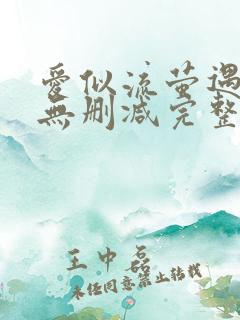 愛似流萤遇
無删减完整
王中磊
未经同意禁止转载